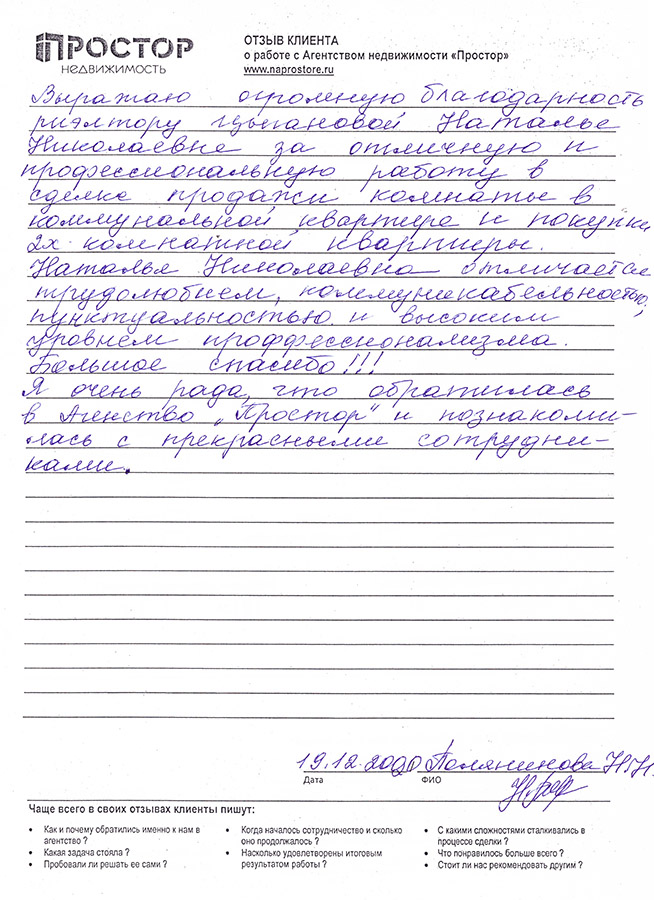 ПРОСТОР
НЕДВИЖИМОСТЬ
ОТЗЫВ КЛИЕНТА
о работе с Агентством недвижимости «Простор»
www.naprostore.ru
Выражаю огромную благодарность
риэлтору Цыгановой Наталье
Николаевне за отличную и
профессиональную работу в
сделке продажи комнаты в
коммунальной квартире и покупки
2х комнатной квартиры.
Наталья Николаевна отличается
трудолюбием, коммуникабельностью,
пунктуальностью и высоким
уровнем проффессионализма.
Большое спасибо!!!
Я очень рада, что обратилась
в Агенство „Простор" и познакоми-
лась с прекрасными сотрудни-
ками.
19.12.2020 Н.Н.
Дата ФИО
Чаще всего в своих отзывах клиенты пишут:
• Как и почему обратились именно к нам в агентство ?
• Какая задача стояла ?
• Пробовали ли решать ее сами ?
• Когда началось сотрудничество и сколько оно продолжалось ?
• Насколько удовлетворены итоговым результатом работы ?
• С какими сложностями сталкивались в процессе сделки ?
• Что понравилось больше всего ?
• Стоит ли нас рекомендовать другим ?